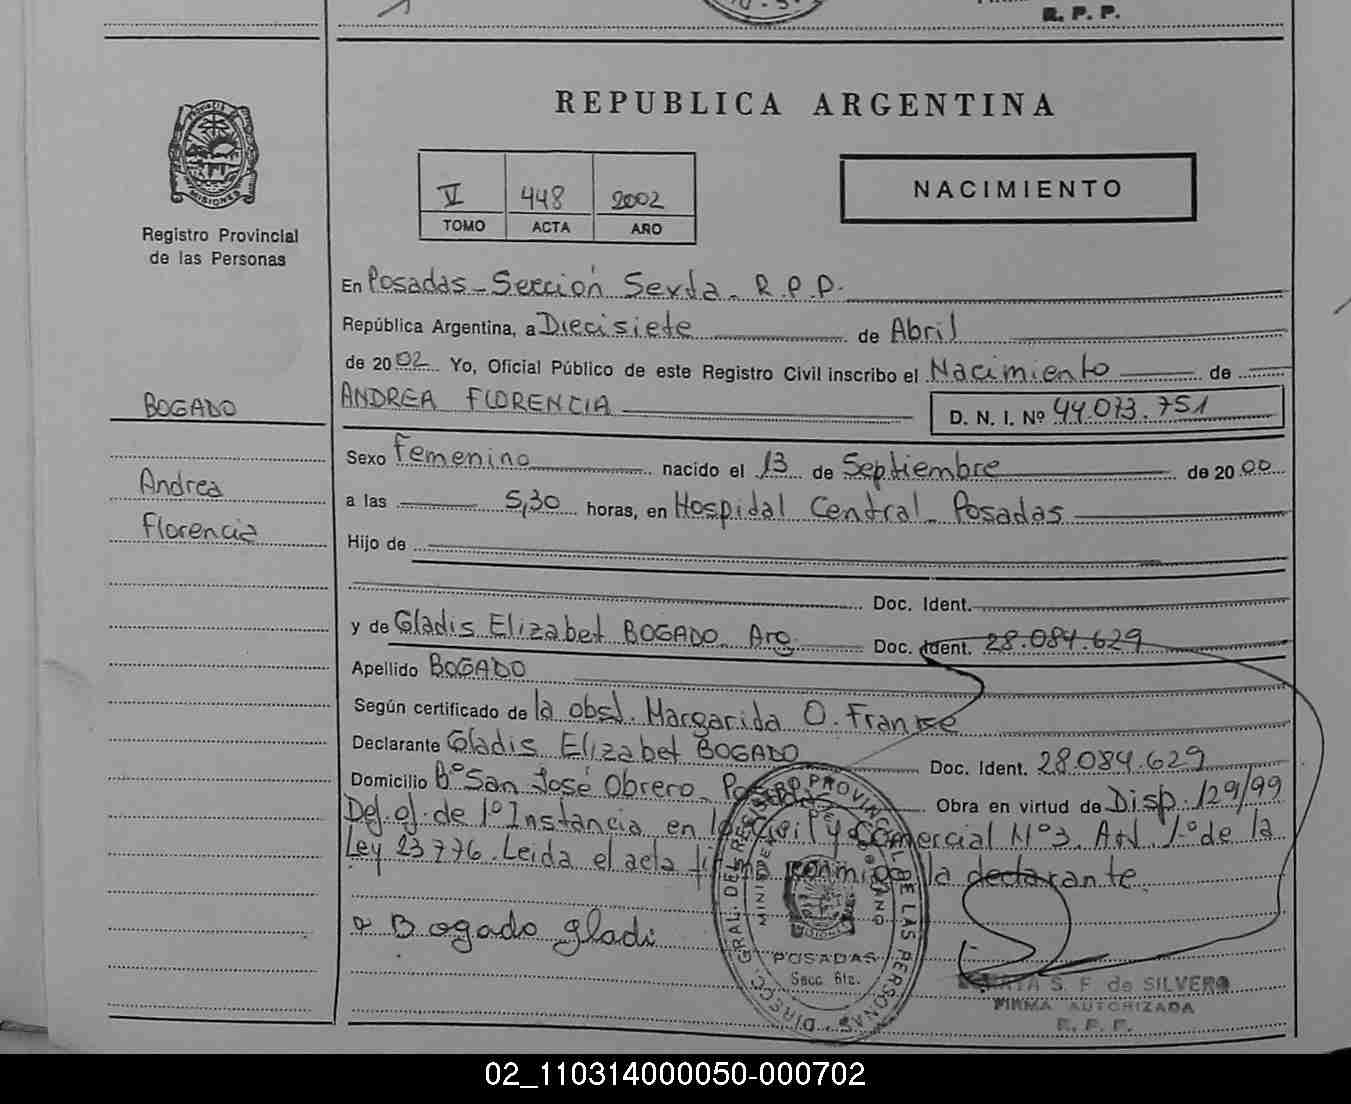 R. P. P.
PROVINCIA DE
MISIONES
Registro Provincial
de las Personas
REPUBLICA ARGENTINA
V 448 2002
TOMO ACTA AÑO
NACIMIENTO
En Posadas - Sección Sexta - R.P.P.
República Argentina, a Diecisiete de Abril
de 2002 Yo, Oficial Público de este Registro Civil inscribo el Nacimiento de
BOGADO
ANDREA FLORENCIA D. N. I. Nº 44.073.751
Sexo Femenino nacido el 13 de Septiembre de 2000
Andrea
a las 5,30 horas, en Hospital Central - Posadas
Florencia
Hijo de
Doc. Ident.
y de Gladis Elizabet BOGADO - Arg. Doc. Ident. 28.084.629
Apellido BOGADO
Según certificado de la obst. Margarida O.
Declarante Gladis Elizabet BOGADO Doc. Ident. 28.084.629
Domicilio Bº San José Obrero - Posadas Obra en virtud de Disp. 129/99
Def. of. de 1º Instancia en lo Civil y Comercial Nº 3. Art. 1º de la
Ley 23776. Leida el acta firma conmigo la declarante.
Bogado gladi
DIRECC. GRAL. DEL REGISTRO PROVINCIAL DE LAS PERSONAS
POSADAS
Secc. 6ta.
S. F. de SILVERO
FIRMA AUTORIZADA
R. P. P.
02_110314000050-000702